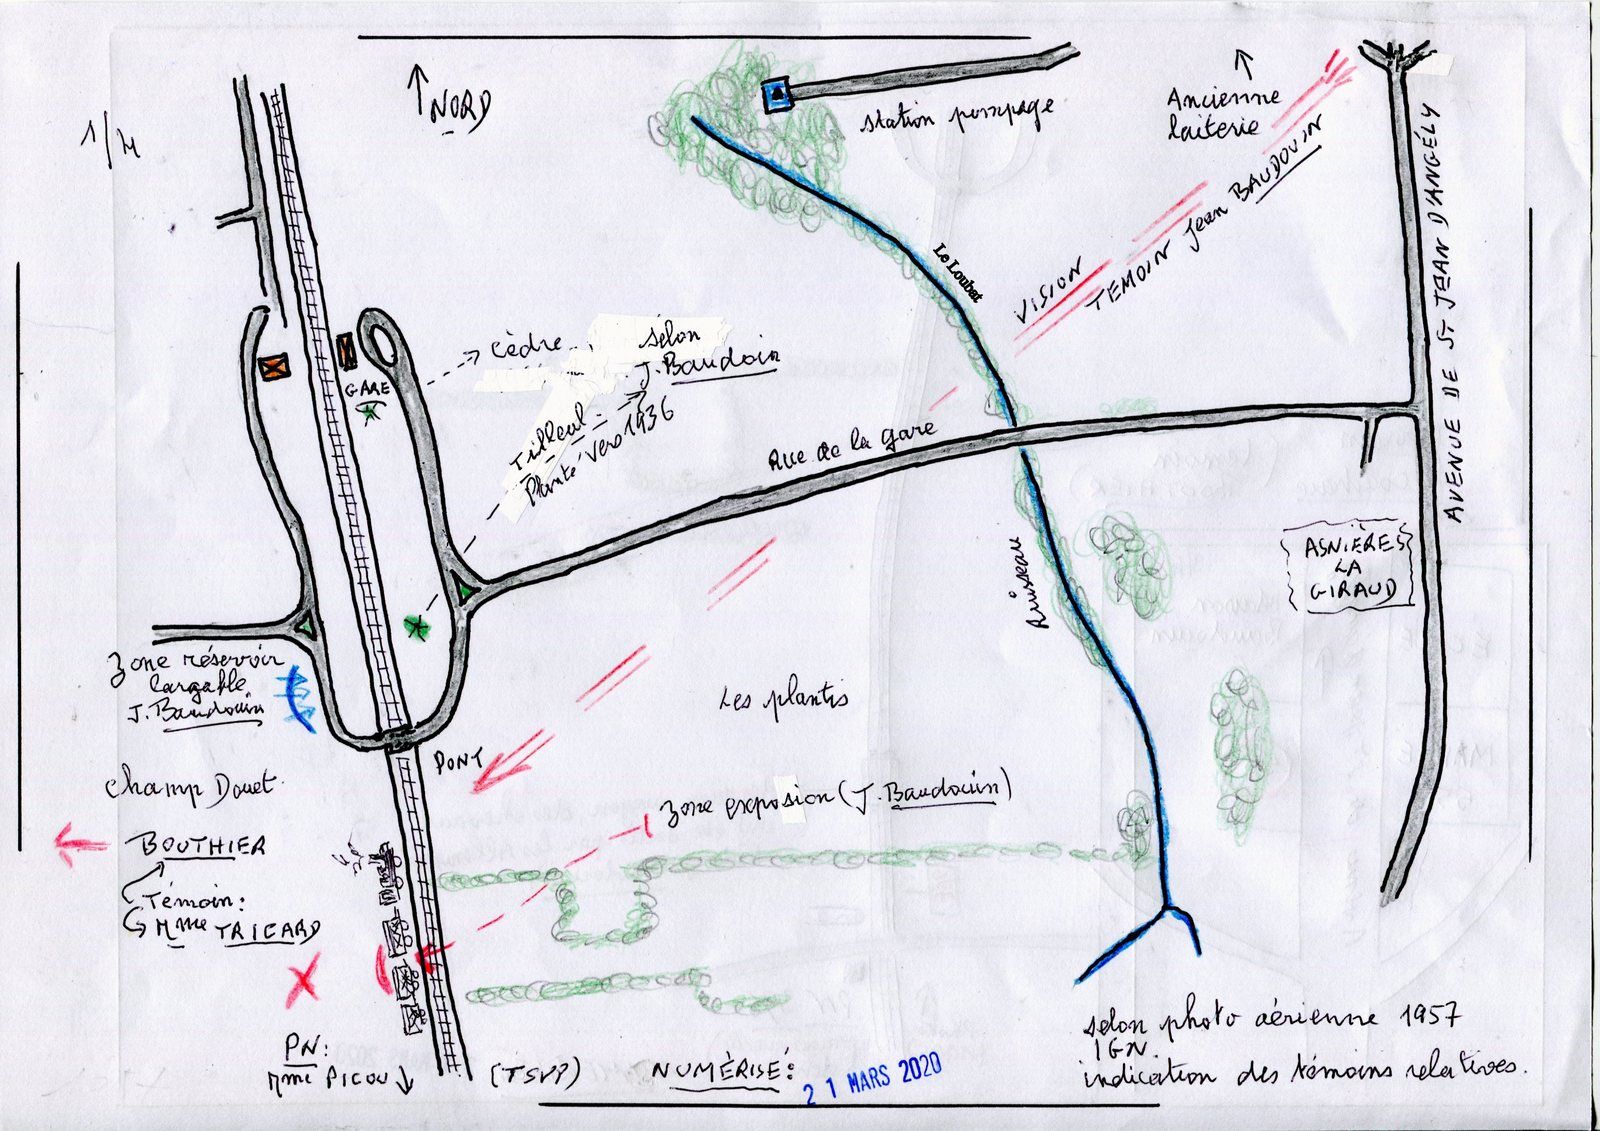 1/4
NORD
station pompage
Ancienne
laiterie
AVENUE DE St JEAN D'ANGÉLY
Le Loubat
VISION
TEMOIN Jean BAUDOUIN
GARE
cèdre
selon
J. Baudoin
Tilleul
Planté vers 1936
Rue de la gare
Ruisseau
ASNIÈRES
LA
GIRAUD
Zone réservoir
largable
J. Baudouin
Les plantis
PONT
Champ Douet
Zone exposion (J. Baudouin)
BOUTHIER
Témoin:
Mme TRICARD
PN:
Mme PICOU
(TSVP)
NUMÉRISÉ:
21 MARS 2020
selon photo aérienne 1957
IGN.
indication des témoins relatives.